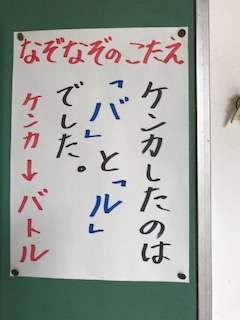 なぞなぞのこたえ
ケンカしたのは
「バ」と「ル」
でした。
ケンカ→バトル